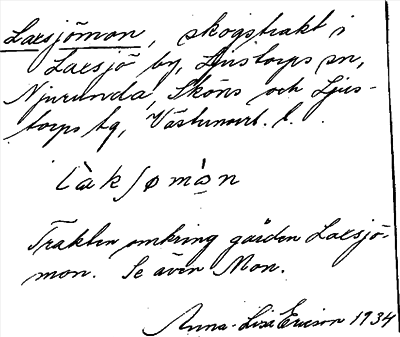 Laxsjömon, skogstrakt i
Laxsjö by, Ljustorps sn,
Njurunda, Sköns och Ljus-
torps tg, Västernorrl. l.
làkʃømòn
Trakten omkring gården Laxsjö-
mon. Se även Mon.
Anna-Lisa Ericson 1934